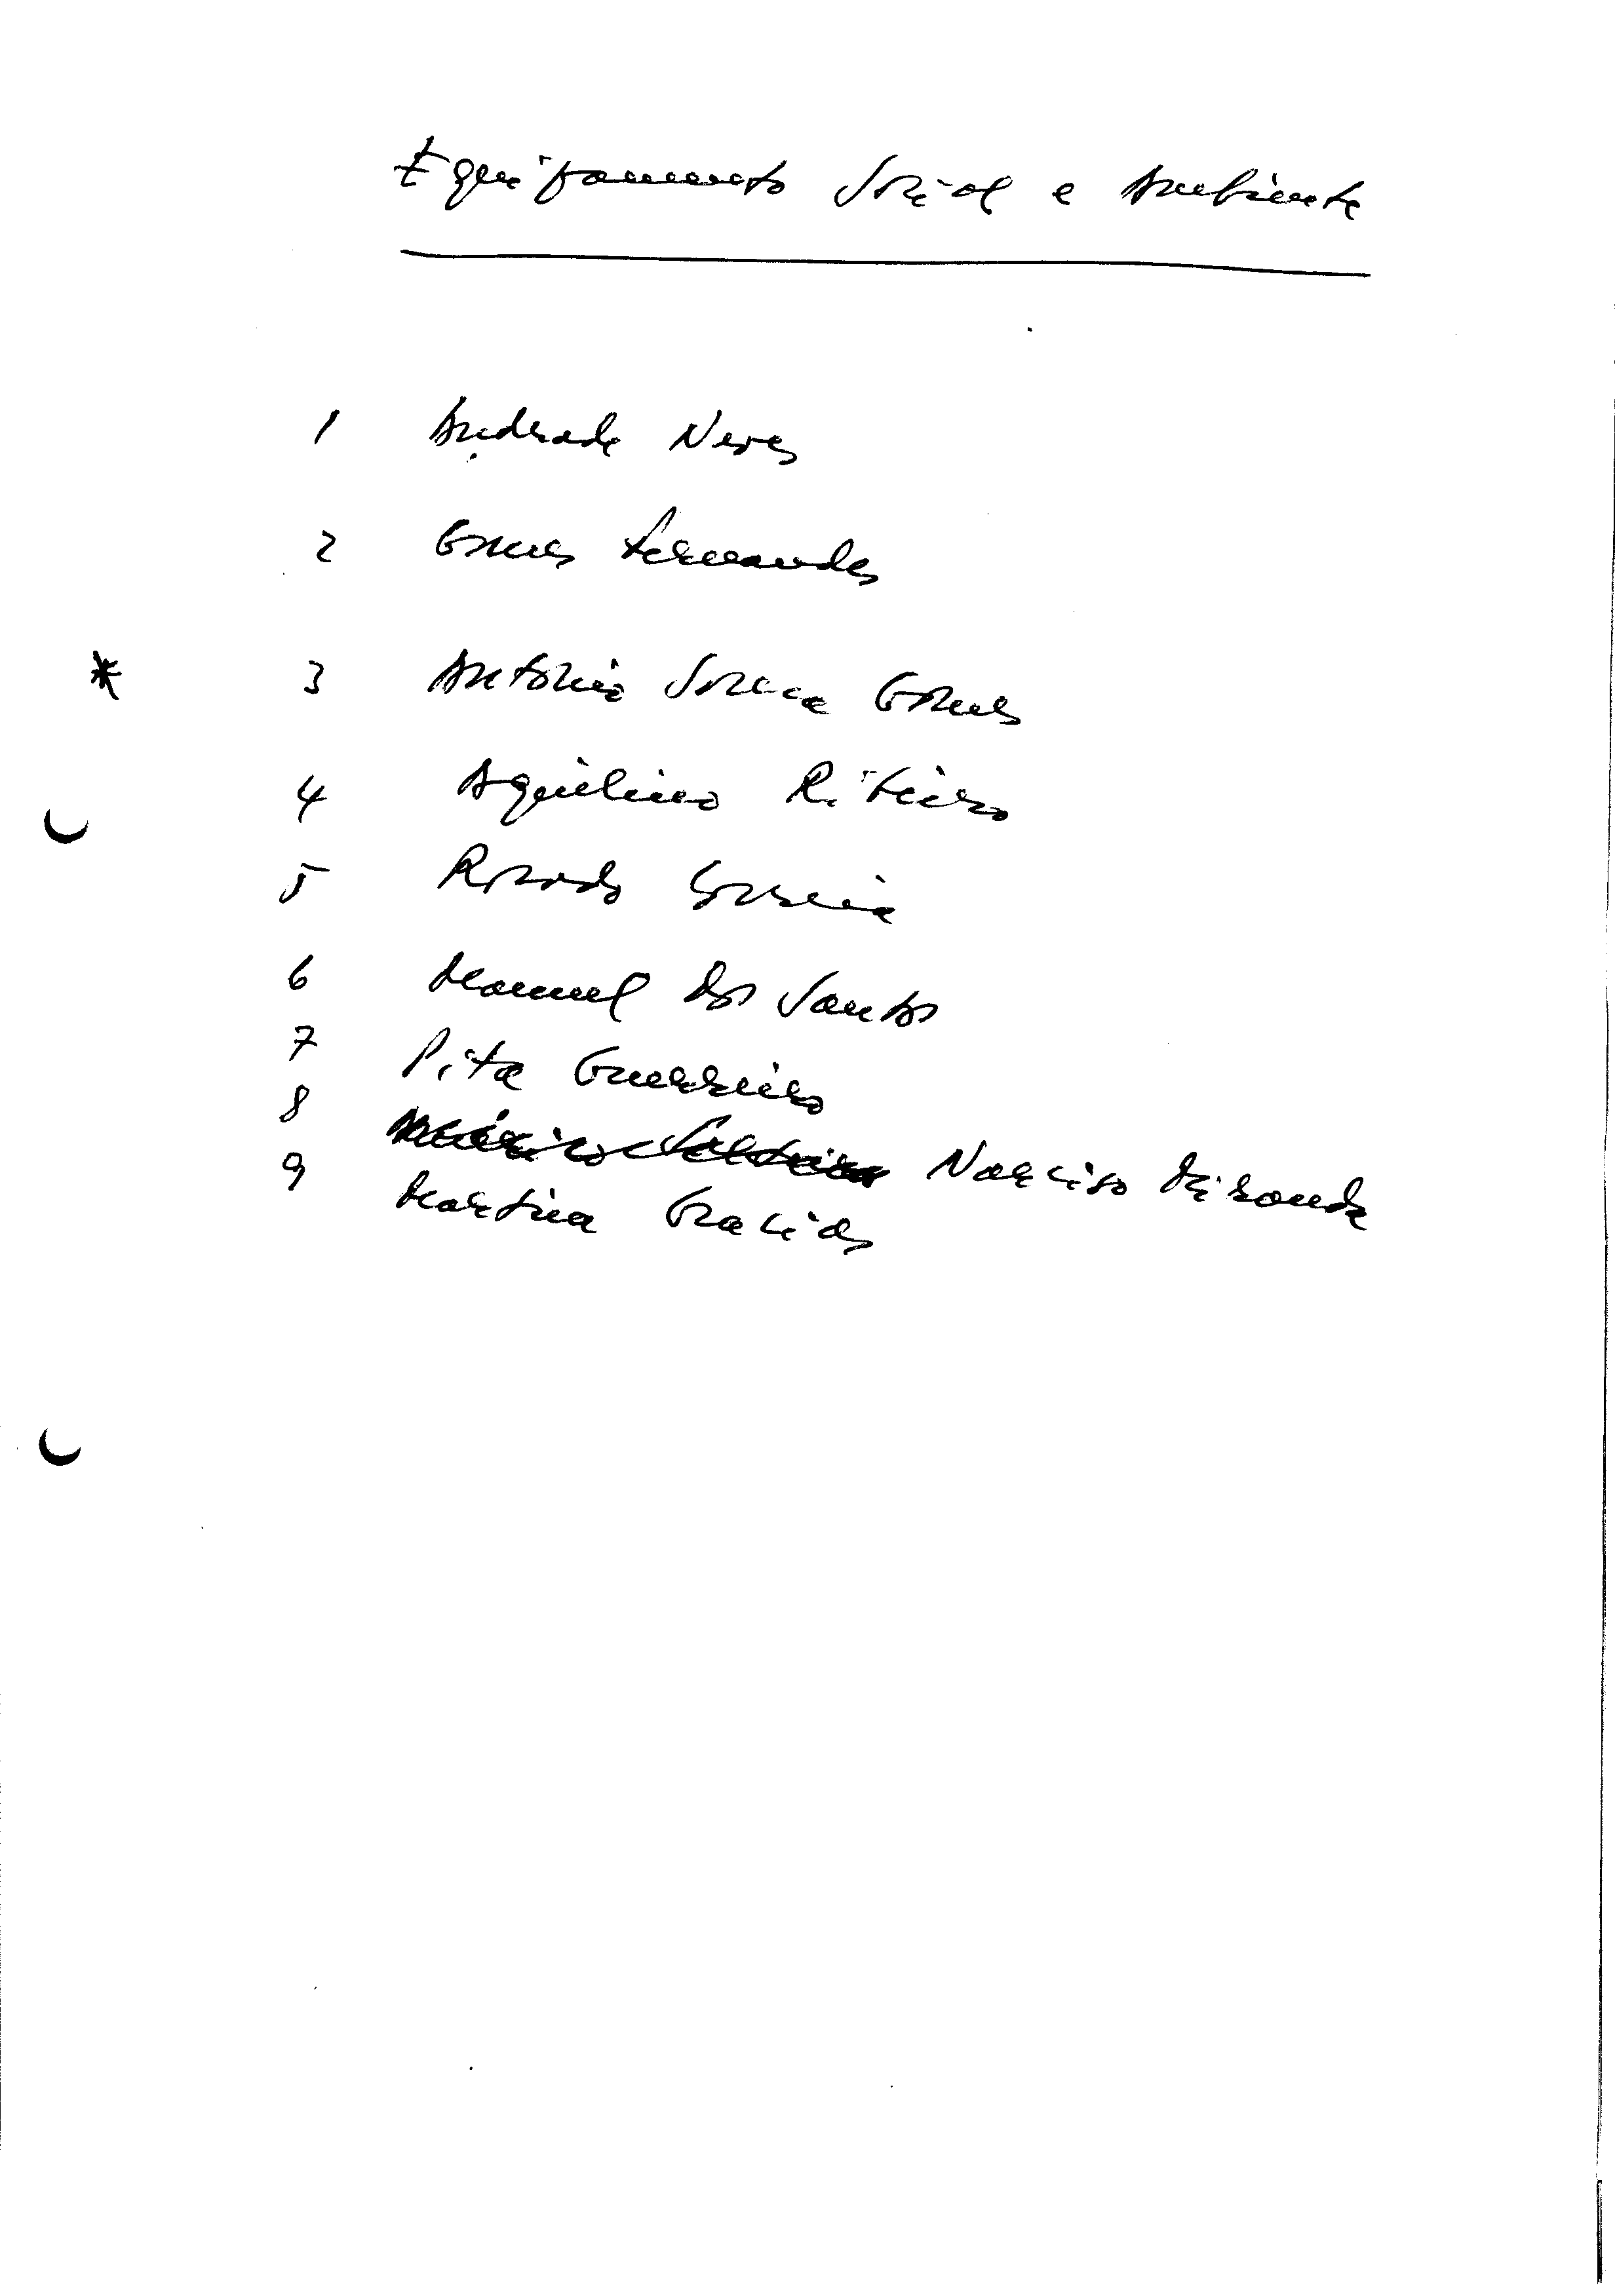 Equipamento Social e Ambiente
1 Andrade Neves
2 Gomes Fernandes
* 3 António Sousa Gomes
4 Aquilino Ribeiro
5 Rosado Correia
6 Manuel dos Santos
7 Pita Guerreiro
8 Narciso Miranda
9 Martins Gracias